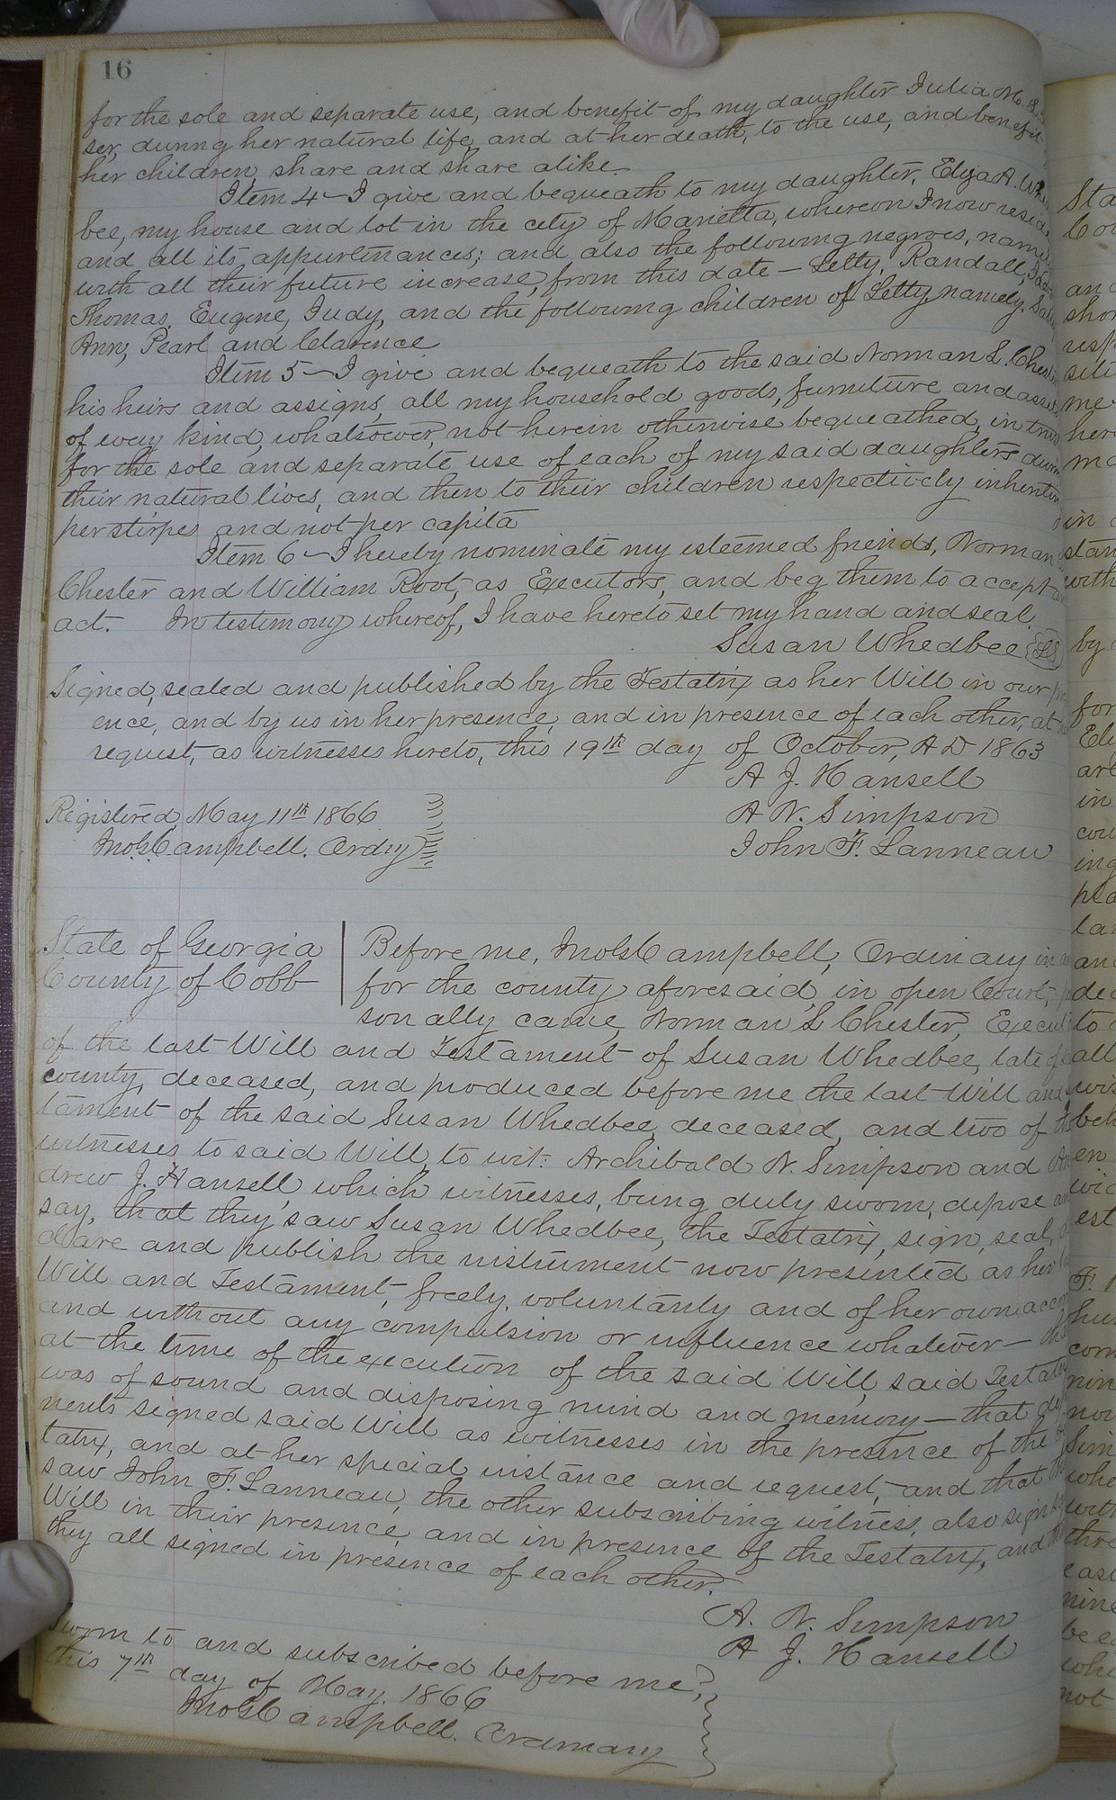 16
for the sole and separate use, and benefit of my daughter Julia M.
ser, during her natural life, and at her death, to the use, and benefit
her children, share and share alike.
Item 4 - I give and bequeath to my daughter, Eliza A. Whe
bee, my house and lot in the city of Marietta, whereon I now reside
and all its appurtinances; and also the following negroes, namely
with all their future increase from this date - Letty, Randall,
Thomas, Eugene, Judy, and the following children of Letty, namely,
Ann, Pearl and Clarence
Item 5 - I give and bequeath to the said Norman L. Chester
his heirs and assigns, all my household goods, furniture and assets
of every kind, whatsoever, not herein otherwise bequeathed, in trust
for the sole and separate use of each of my said daughters during
their natural lives, and then to their children respectively inheriting
per stirpes and not per capita
Item 6 - I hereby nominate my esteemed friends, Norman
Chester and William Root, as Executors, and beg them to accept
act. In testimony whereof, I have hereto set my hand and seal,
Susan Whedbee {LS}
Signed, sealed and published by the Testatrix as her Will in our pre
ence, and by us in her presence, and in presence of each other, at
request, as witnesses hereto, this 19th day of October, A D 1863
A J. Hansell
Registered, May 11th 1866 A N. Simpson
Jno. G. Campbell. Ordry John F. Lanneau
State of Georgia Before me, Jno G. Campbell, Ordinary in
County of Cobb for the county aforesaid, in open Court,
sonally came Norman L Chester, Execu
of the last Will and Testament of Susan Whedbee, late of
county, deceased, and produced before me the last Will and
tament of the said Susan Whedbee, deceased, and two of the
witnesses to said Will, to wit: Archibald N. Simpson and An
drew J. Hansell, which witnesses, being duly sworn, depose
say, that they saw Susan Whedbee, the Testatrix, sign, seal,
clare and publish the instrument now presented as her
Will and Testament, freely, voluntarily and of her own accor
and without any compulsion or influence whatever -
at the time of the execution of the said Will, said Testat
was of sound and disposing mind and memory - that de
nents signed said Will as witnesses in the presence of the
tatrix, and at her special instance and request, and that
saw John F. Lanneau, the other subscribing witness, also sign
Will in their presence, and in presence of the Testatrix, and
they all signed in presence of each other.
A. N. Simpson
A J. Hansell
Sworn to and subscribed before me,
this 7th day of May. 1866
Jno G. Campbell. Ordinary